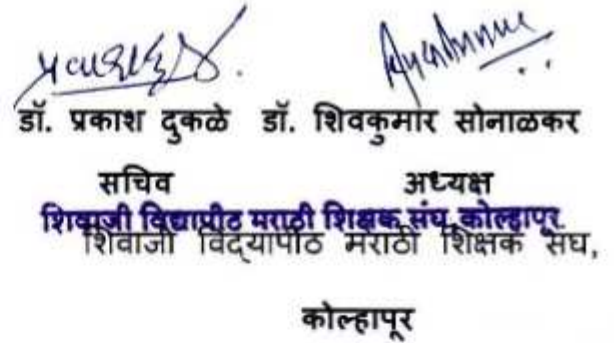 डॉ. प्रकाश दुकळे डॉ. शिवकुमार सोनाळकर
सचिव अध्यक्ष
शिवाजी विद्यापीठ मराठी शिक्षक संघ, कोल्हापूर
शिवाजी विद्यापीठ मराठी शिक्षक संघ,
कोल्हापूर